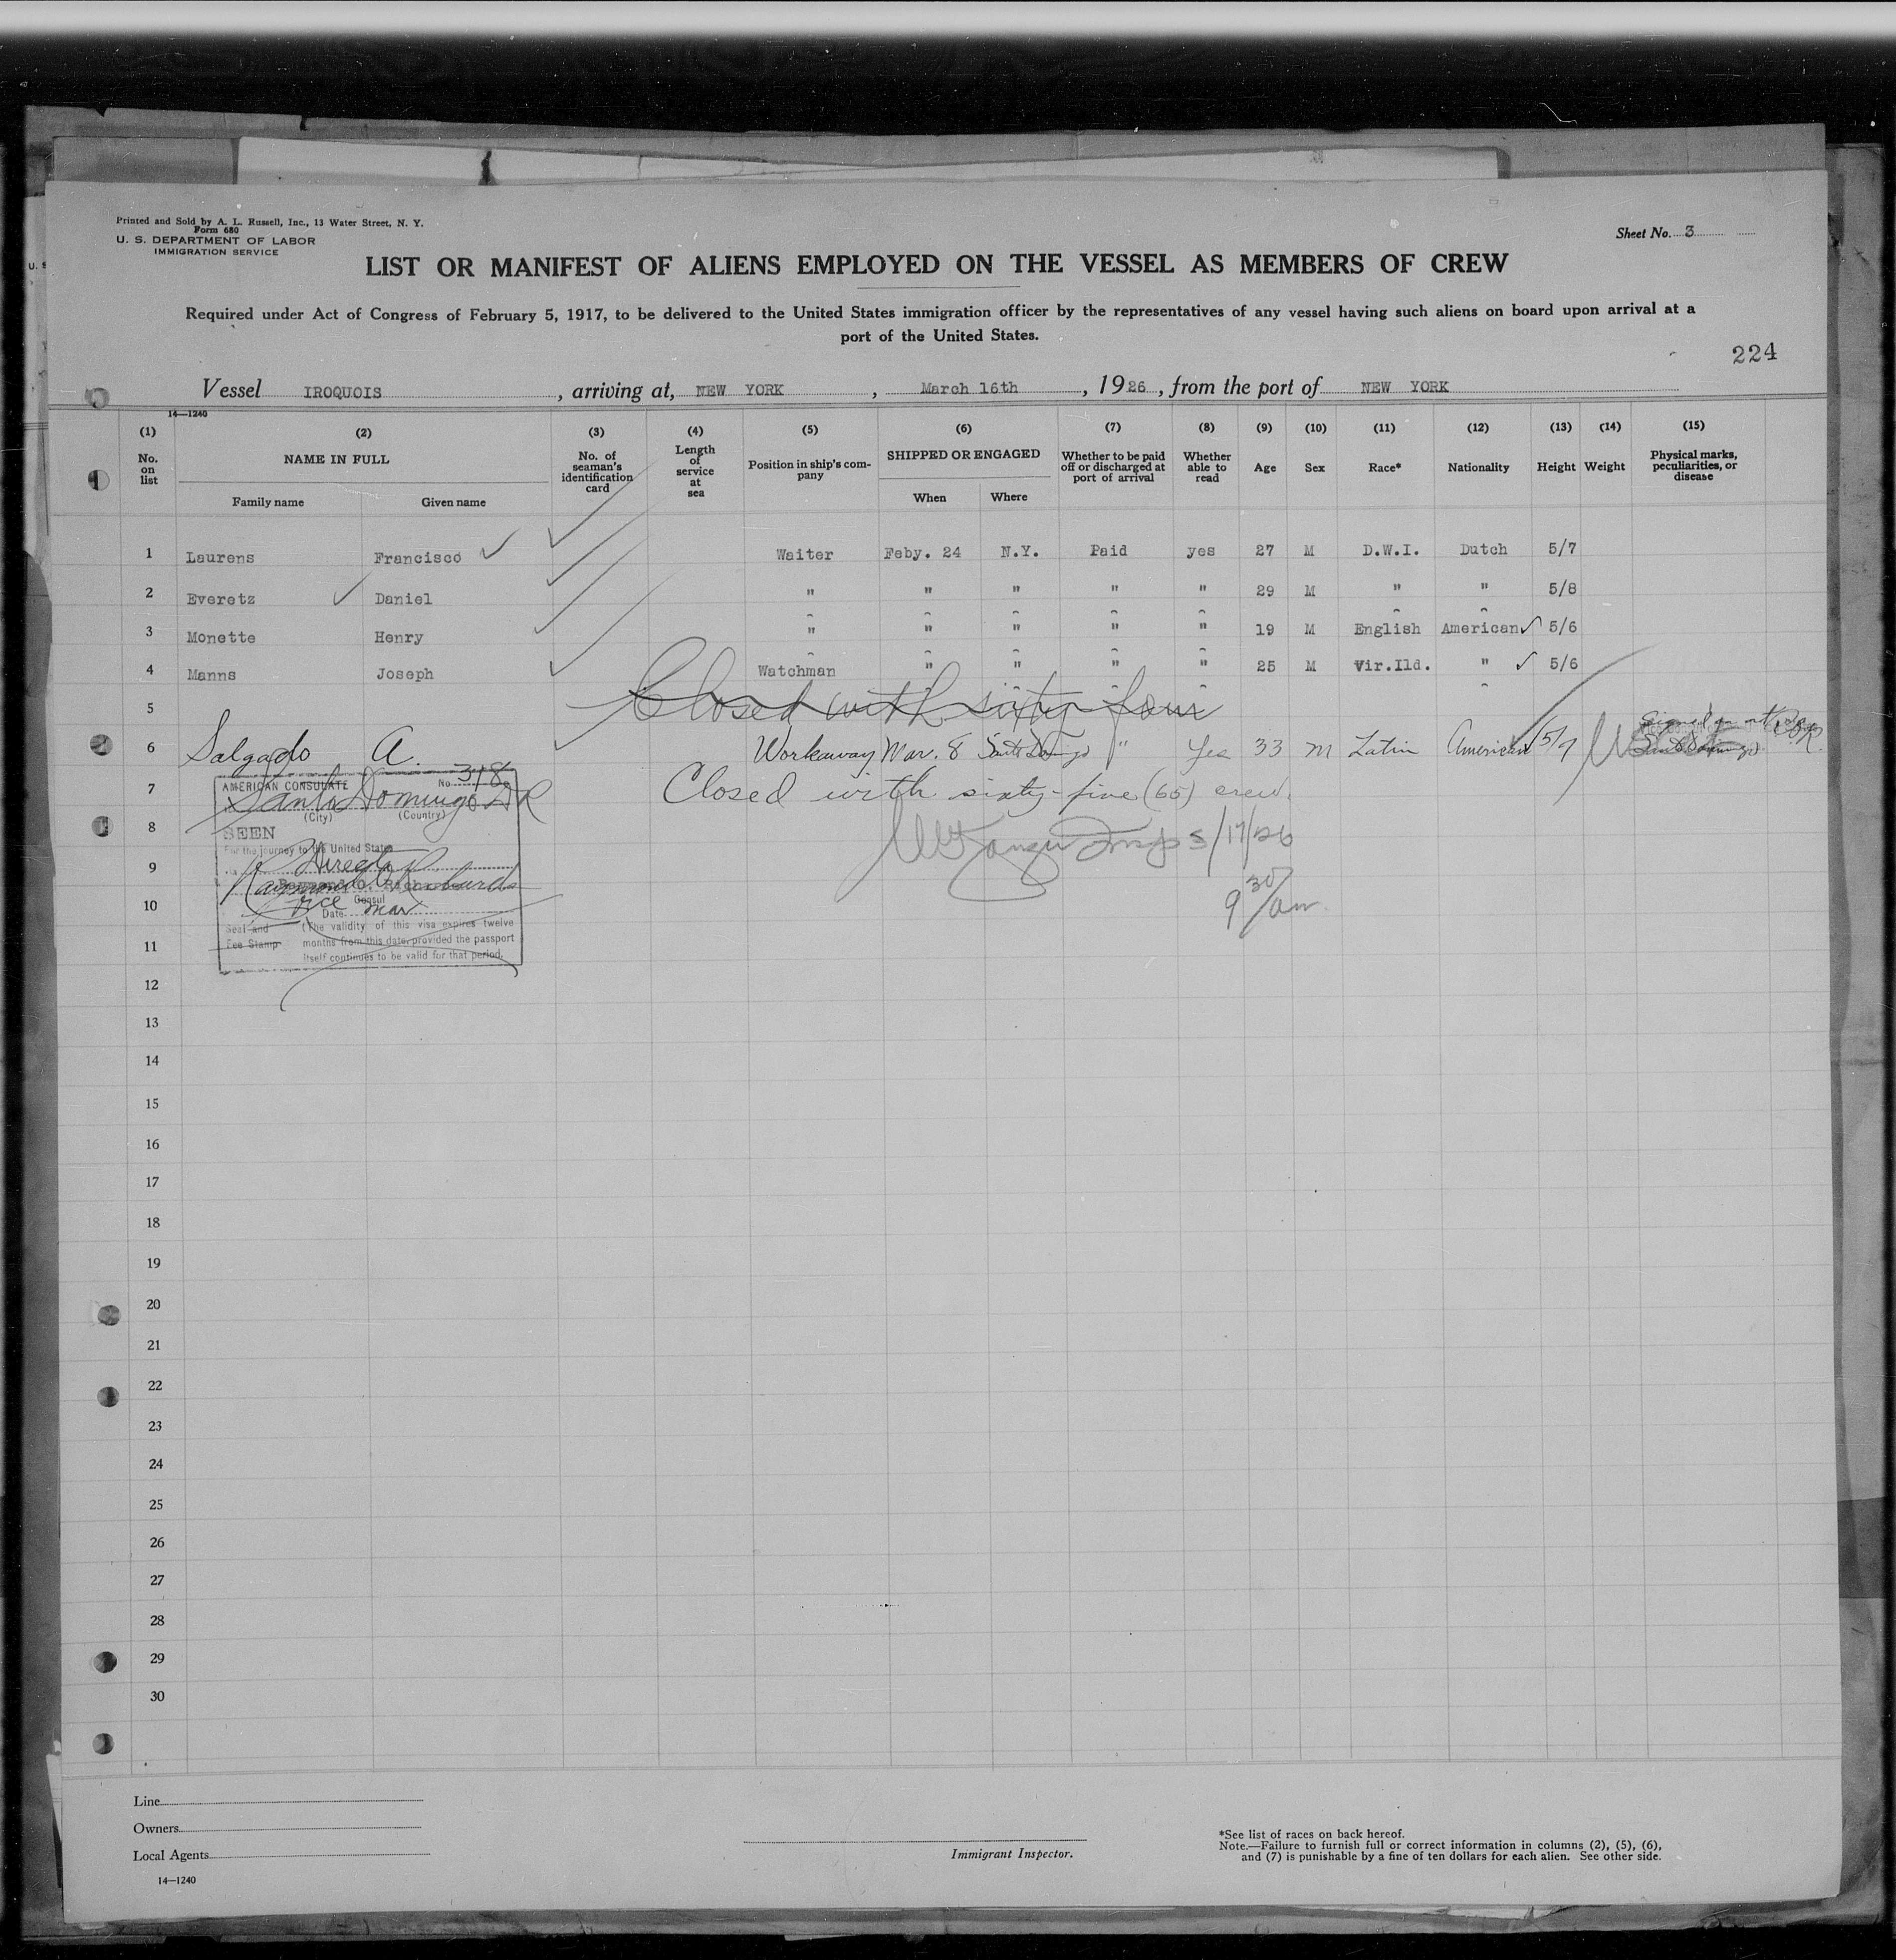 Printed and Sold by A. L. Russell, Inc., 13 Water Street, N. Y.
Form 680
U. S. DEPARTMENT OF LABOR
IMMIGRATION SERVICE
Sheet No. 3
LIST OR MANIFEST OF ALIENS EMPLOYED ON THE VESSEL AS MEMBERS OF CREW
Required under Act of Congress of February 5, 1917, to be delivered to the United States immigration officer by the representatives of any vessel having such aliens on board upon arrival at a
port of the United States.
224
Vessel IROQUOIS, arriving at, NEW YORK, March 16th, 1926, from the port of NEW YORK
14—1240
(1) (2) (3) (4) (5) (6) (7) (8) (9) (10) (11) (12) (13) (14) (15)
No. on list
NAME IN FULL
Family name Given name
No. of seaman's identification card
Length of service at sea
Position in ship's company
SHIPPED OR ENGAGED
When Where
Whether to be paid off or discharged at port of arrival
Whether able to read
Age Sex Race* Nationality Height Weight
Physical marks, peculiarities, or disease
1 Laurens Francisco Waiter Feby. 24 N.Y. Paid yes 27 M D.W.I. Dutch 5/7
2 Everetz Daniel " " " " " 29 M " " 5/8
3 Monette Henry " " " " " 19 M English American 5/6
4 Manns Joseph Watchman " " " " 25 M Vir.Ild. " 5/6
5 Closed with sixty four
6 Salgado A. Workaway Mar. 8 Santo Domingo " Yes 33 M Latin American 5/7
Signed on at
Santo Domingo
7 Closed with sixty-five (65) crew.
AMERICAN CONSULATE No. 318
Santo Domingo D R
(City) (Country)
8
SEEN
For the journey to the United States
3/17/26
9
Direct
10
Vice Consul
Date Mar
9 30/am
11
Seal and Fee Stamp
(The validity of this visa expires twelve
months from this date, provided the passport
itself continues to be valid for that period.
12
13
14
15
16
17
18
19
20
21
22
23
24
25
26
27
28
29
30
Line
Owners
Local Agents
14—1240
Immigrant Inspector.
*See list of races on back hereof.
Note.—Failure to furnish full or correct information in columns (2), (5), (6),
and (7) is punishable by a fine of ten dollars for each alien. See other side.